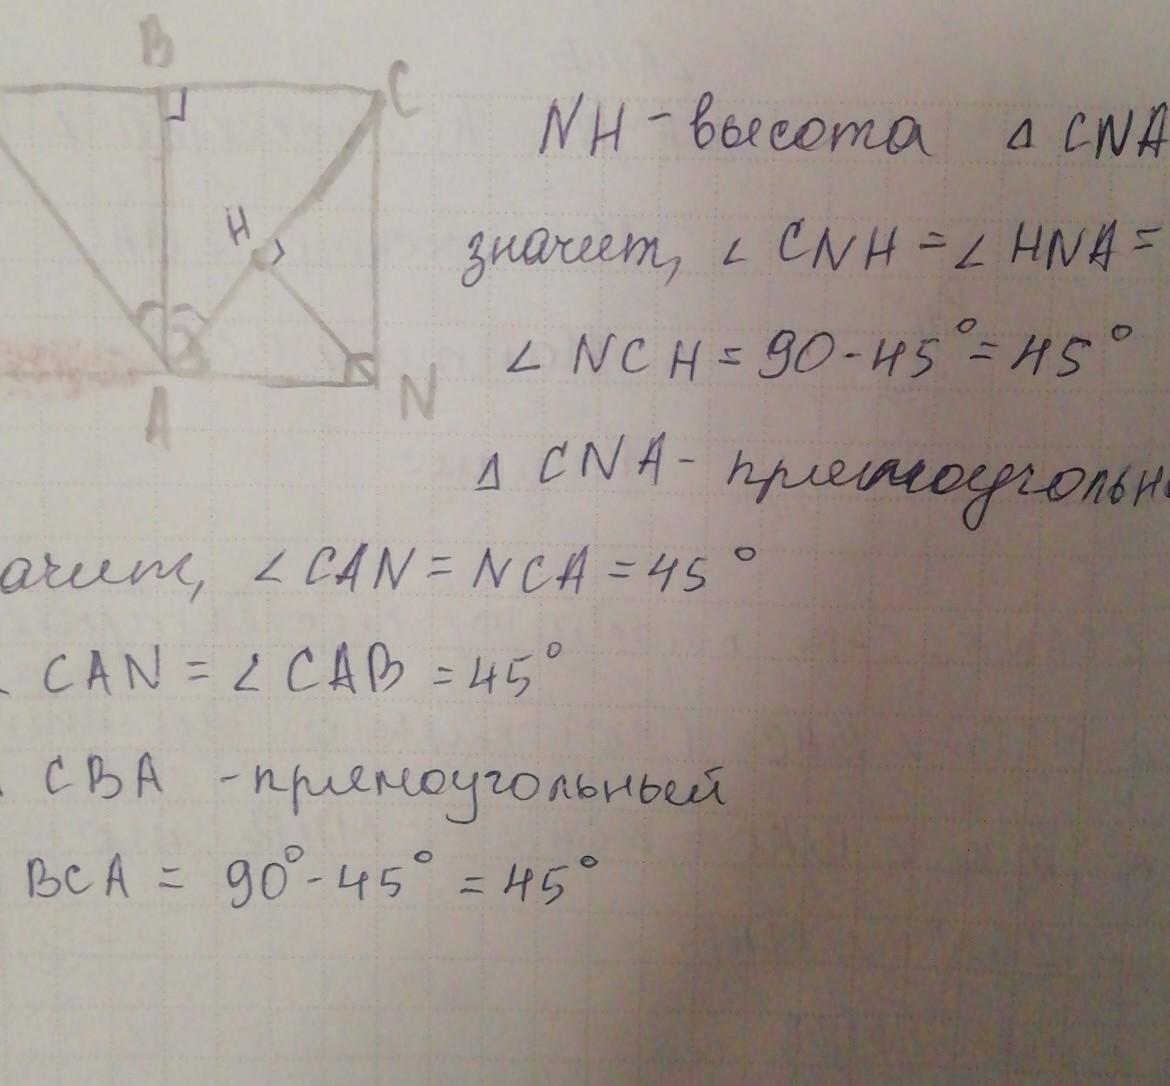 B
C
H
A
N
NH - высота △ CNA
значит, ∠ CNH = ∠ HNA =
∠ NCH = 90 - 45° = 45°
△ CNA - прямоугольн
ачит, ∠ CAN = NCA = 45°
CAN = ∠ CAB = 45°
CBA - прямоугольный
BCA = 90° - 45° = 45°